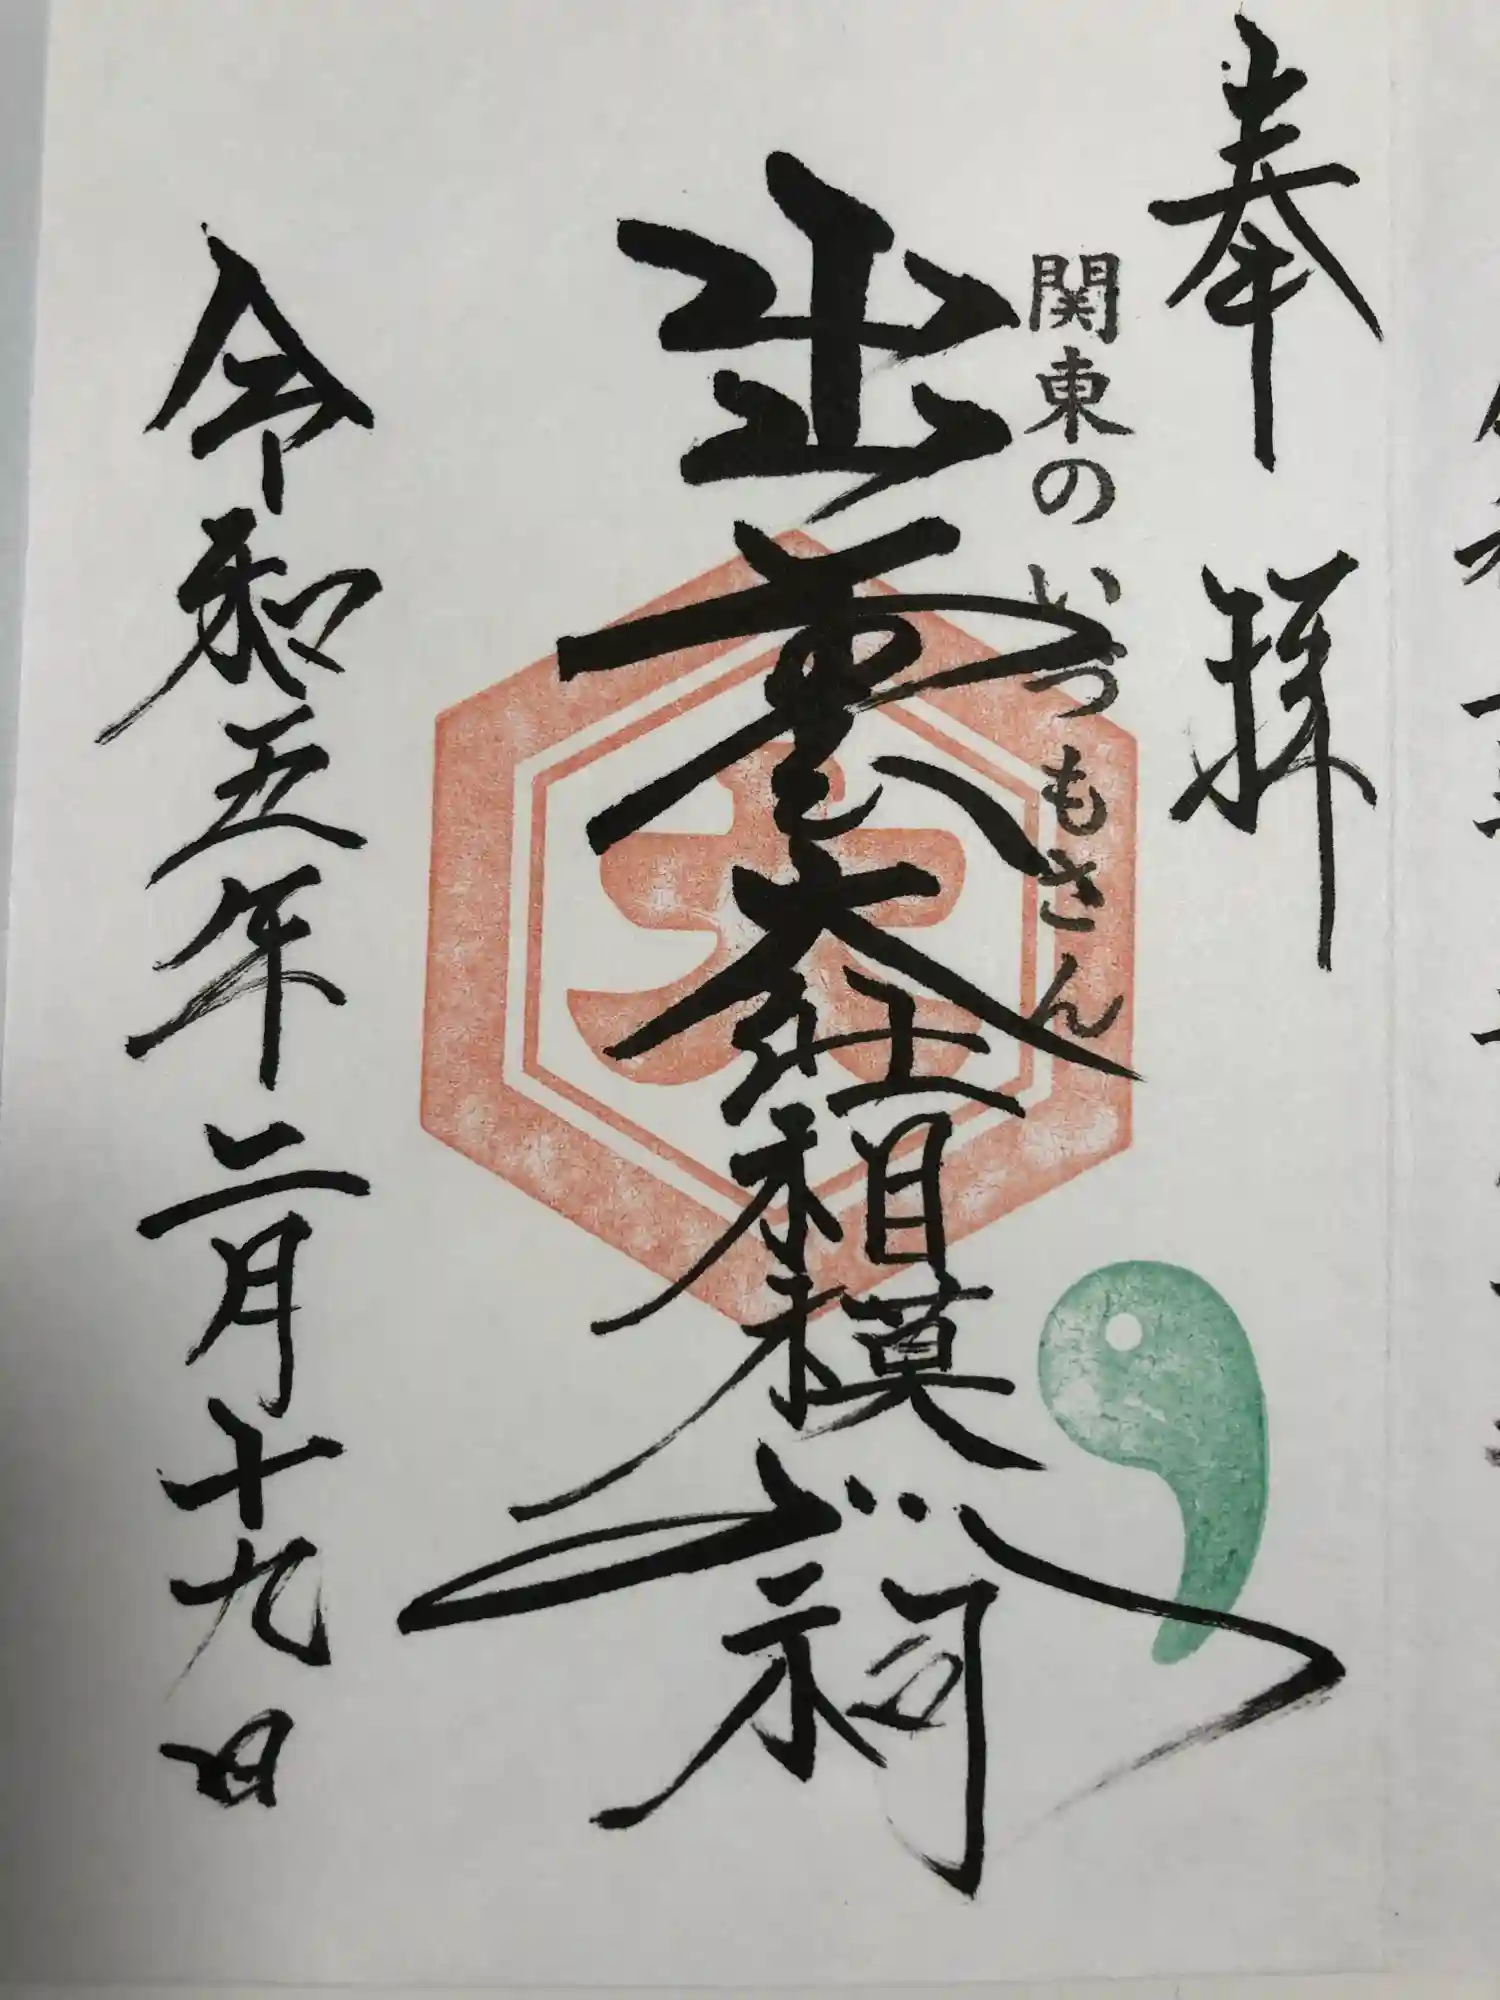 奉拝
関東のいづもさん
出雲大社相模分祠
大
令和五年二月十九日